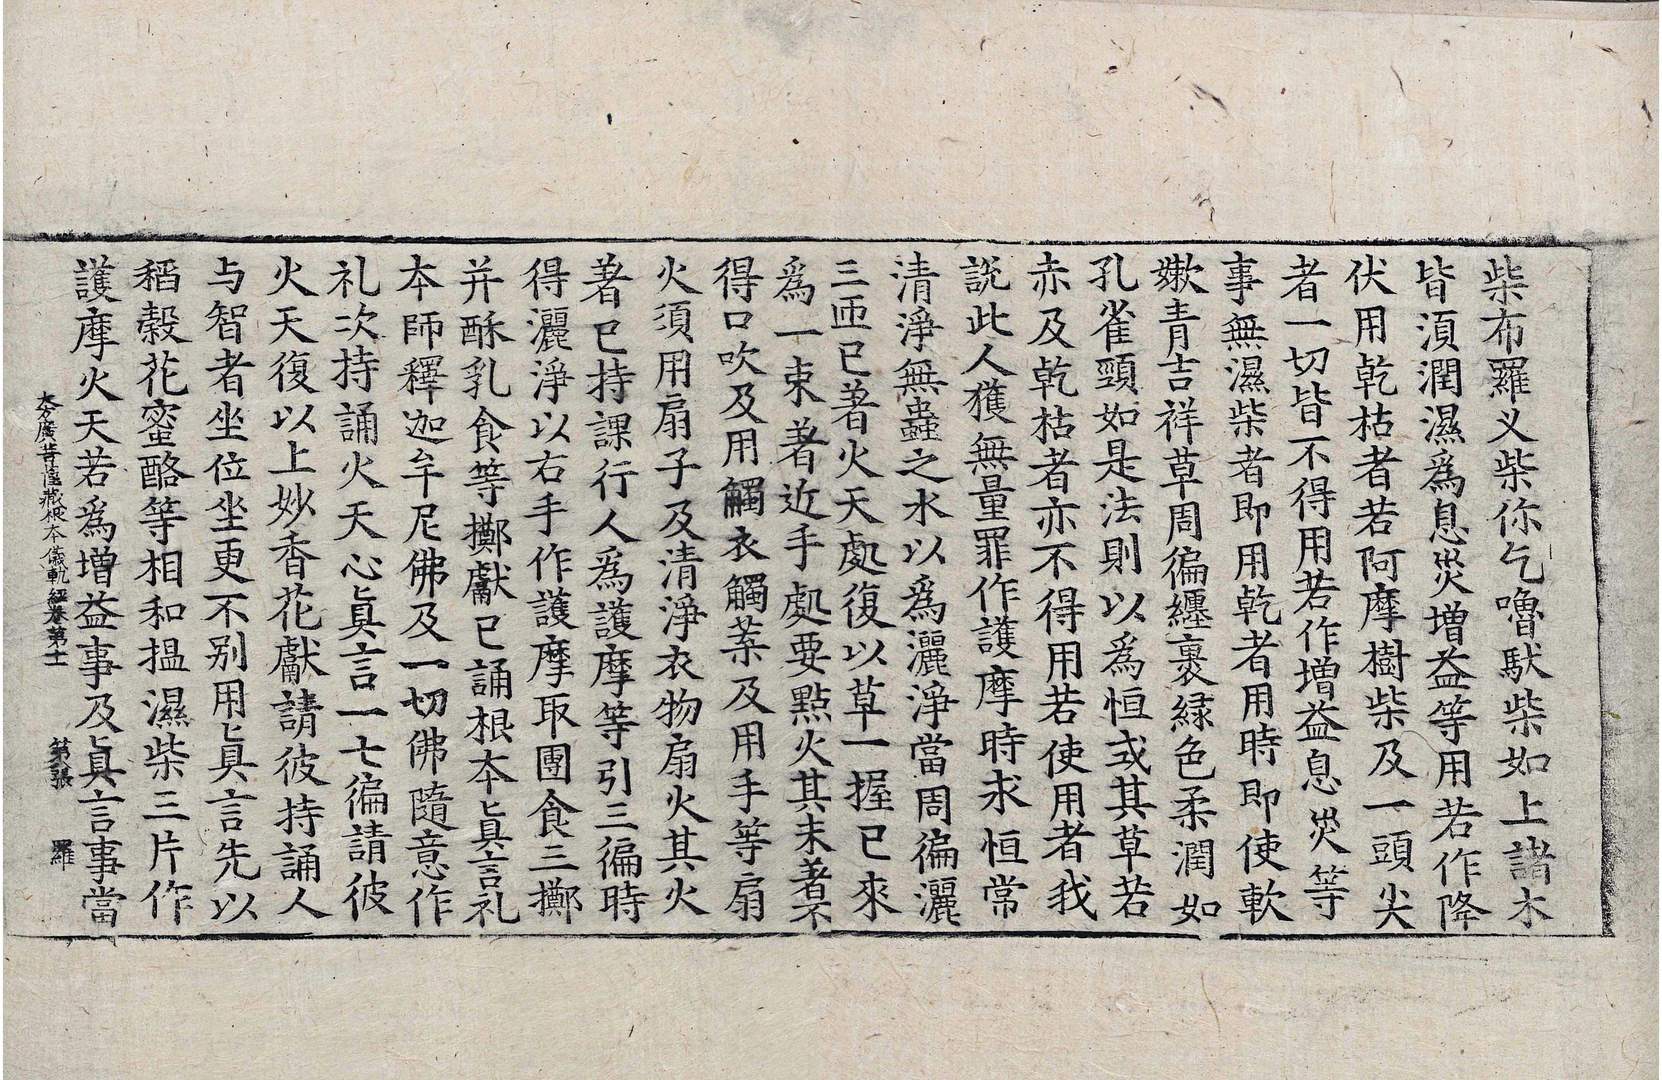 柴布羅义柴你乞嚕馱柴如上諸木
皆湏潤濕爲息災增益等用若作降
伏用乾枯者若阿摩樹柴及一頭尖
者一切皆不得用若作增益息災等
事無濕柴者即用乾者用時即使軟
嫩青吉祥草周徧纏裹緑色柔潤如
孔雀頸如是法則以爲恒式其草若
赤及乾枯者亦不得用若使用者我
說此人獲無量罪作護摩時求恒常
清淨無蟲之水以爲灑淨當周徧灑
三匝已著火天處復以草一握已來
爲一束著近手處要點火其末著不
得口吹及用觸衣觸蒅及用手等扇
火須用扇子及清淨衣物扇火其火
著已持課行人爲護摩等引三徧時
得灑淨以右手作護摩取團食三擲
并酥乳食等擲獻已誦根本眞言礼
本師釋迦牟尼佛及一切佛隨意作
礼次持誦火天心眞言一七徧請彼
火天復以上妙香花獻請彼持誦人
与智者坐位坐更不别用眞言先以
稻穀花蜜酪等相和搵濕柴三片作
護摩火天若爲增益事及眞言事當
大方廣菩薩藏根本儀軌經卷第十
第張
羅